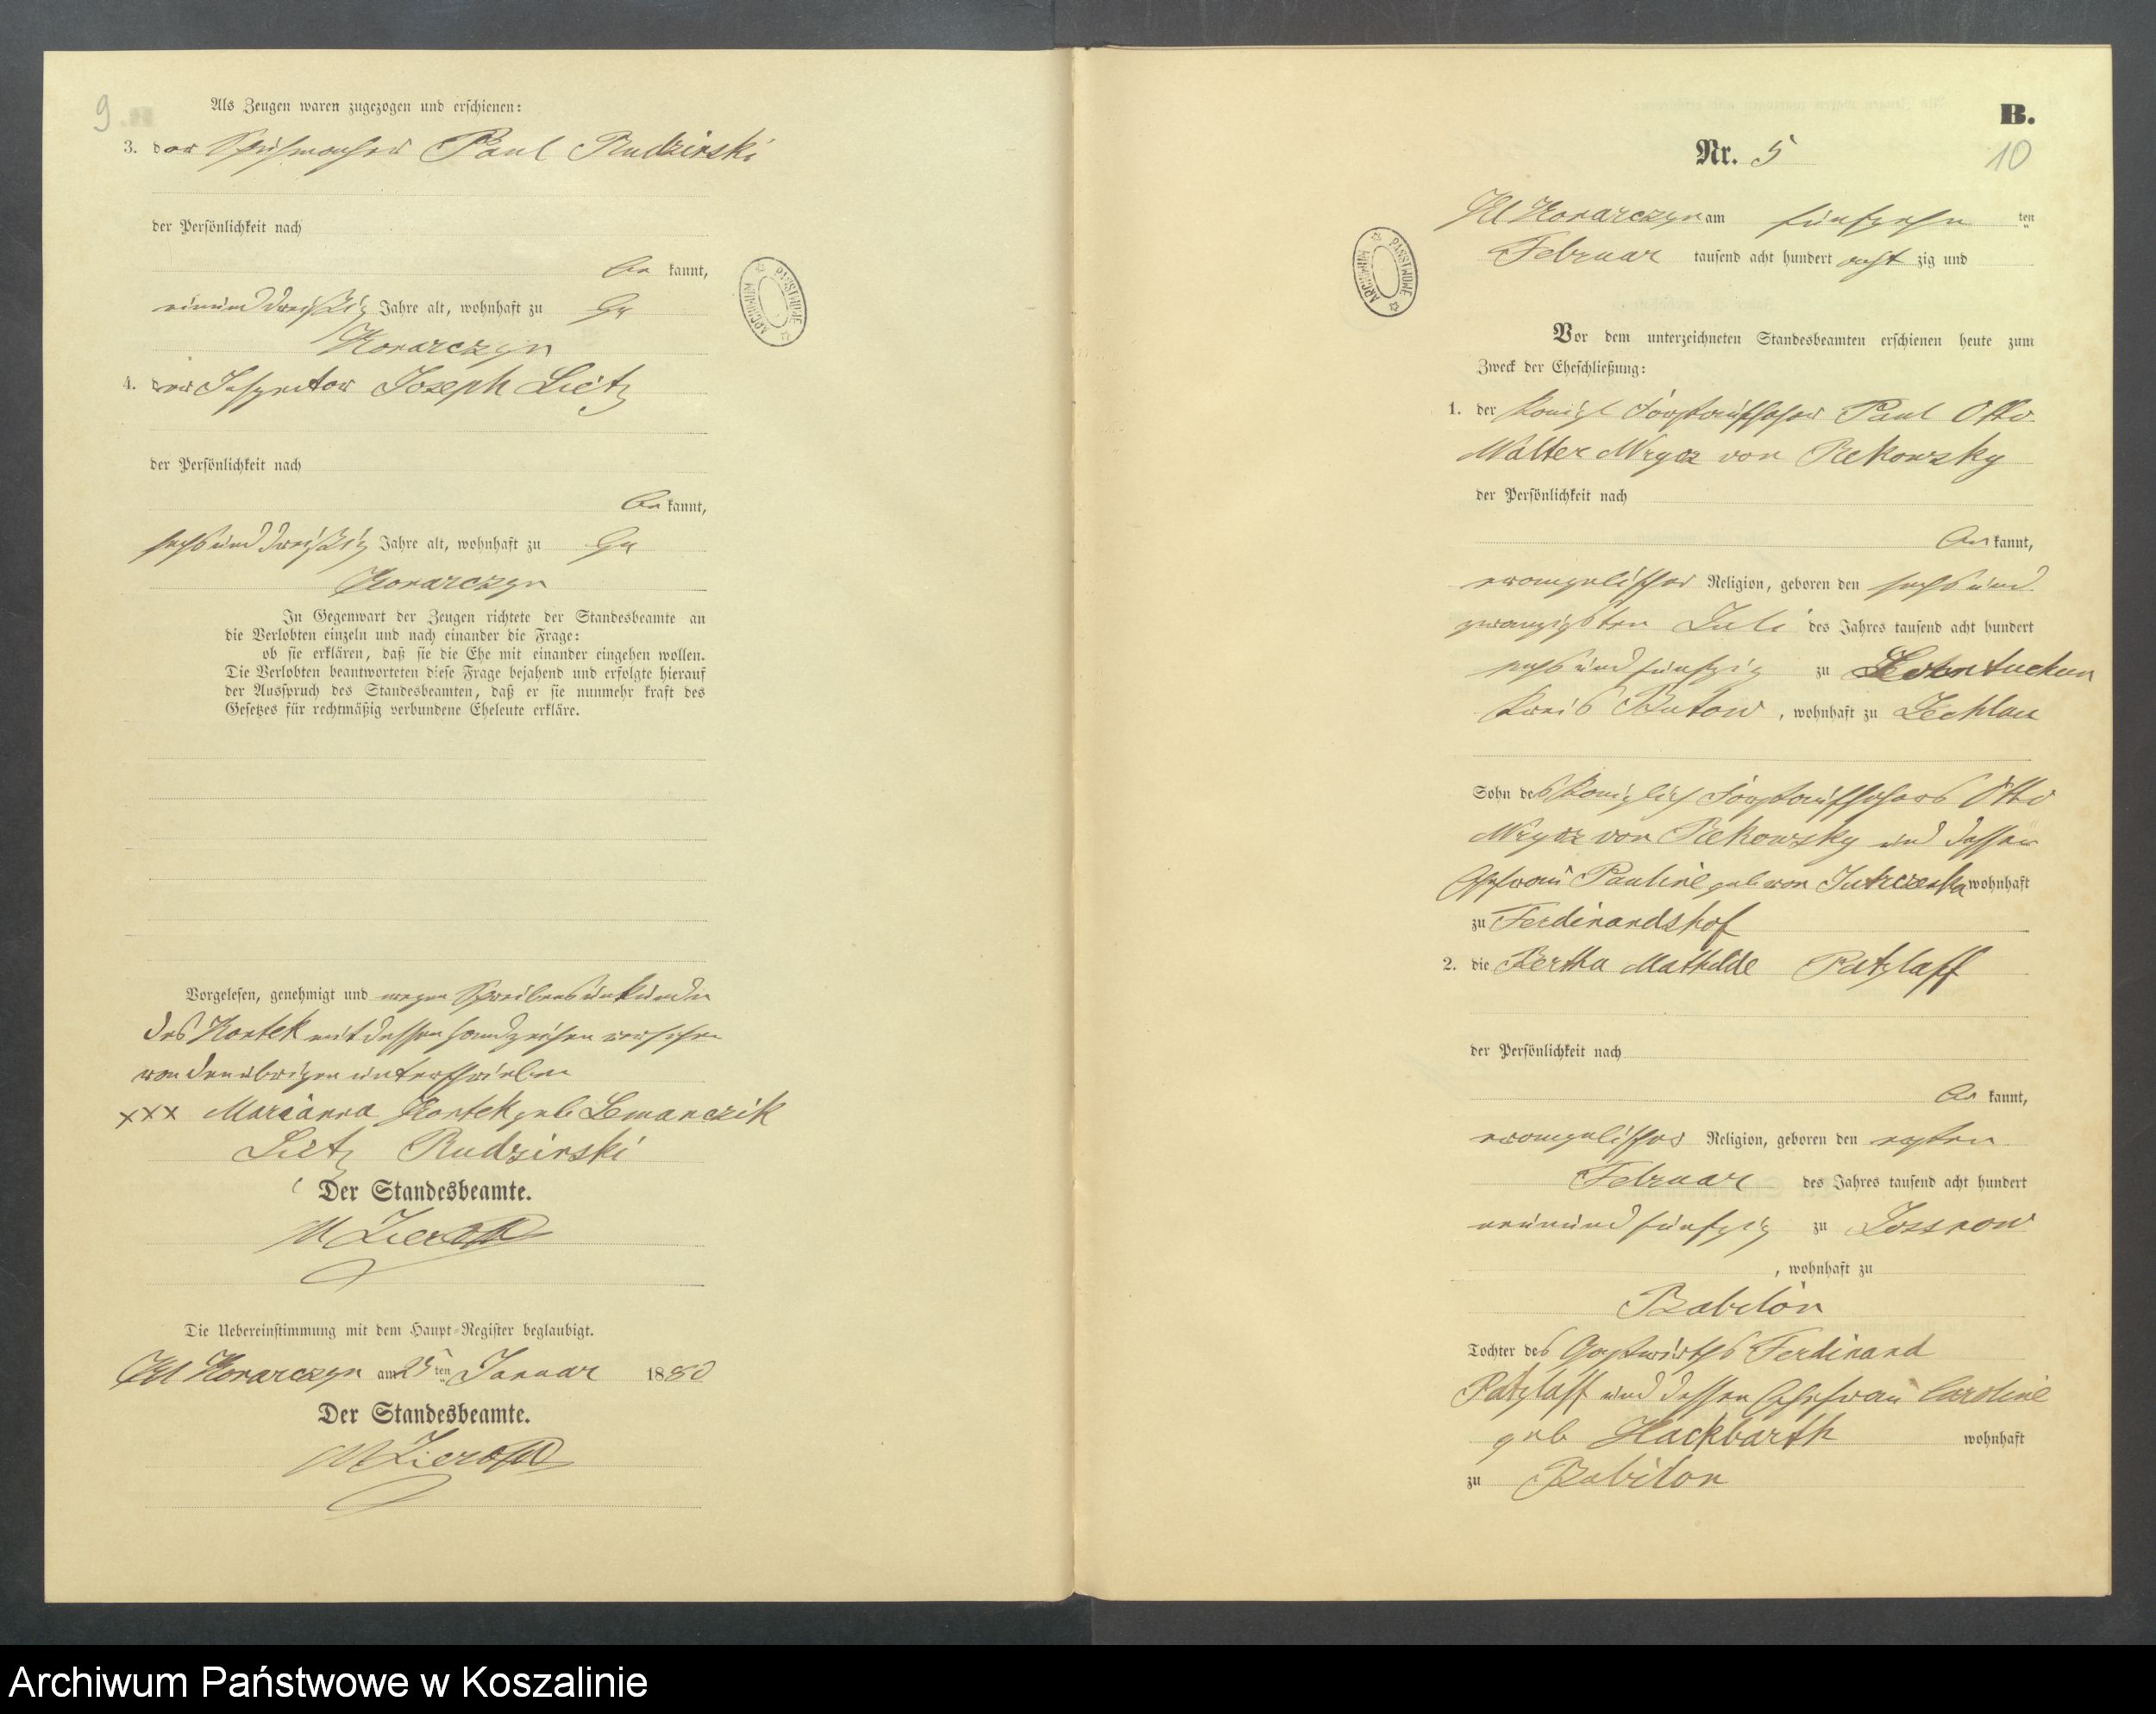 9
Als Zeugen waren zugezogen und erschienen:
3. der Schuhmacher Paul Rudzinski
der Persönlichkeit nach
be kannt,
einunddreißig Jahre alt, wohnhaft zu Gr
Konarczyn
4. der Inspector Joseph Lietz
der Persönlichkeit nach
be kannt,
sechsunddreißig Jahre alt, wohnhaft zu Gr
Konarczyn
In Gegenwart der Zeugen richtete der Standesbeamte an
die Verlobten einzeln und nach einander die Frage:
ob sie erklären, daß sie die Ehe mit einander eingehen wollen.
Die Verlobten beantworteten diese Frage bejahend und erfolgte hierauf
der Ausspruch des Standesbeamten, daß er sie nunmehr kraft des
Gesetzes für rechtmäßig verbundene Eheleute erkläre.
Vorgelesen, genehmigt und wegen Schreibensunkunde
des Kontek mit dessen Handzeichen versehen
von den übrigen unterschrieben
xxx Marianna Kontek geb Lemanczik
Lietz Rudzinski
Der Standesbeamte.
Die Uebereinstimmung mit dem Haupt-Register beglaubigt.
Kl Konarczyn am 25 ten Januar 1880
Der Standesbeamte.
B.
Nr. 5
10
Kl Konarczyn am fünfzehn ten
Februar tausend acht hundert acht zig und
Vor dem unterzeichneten Standesbeamten erschienen heute zum
Zweck der Eheschließung:
1. der Königl Forstaufseher Paul Otto
Walter Wrycz von Rekowsky
der Persönlichkeit nach
be kannt,
evangelischer Religion, geboren den sechsund
zwanzigsten Juli des Jahres tausend acht hundert
sechsundfünfzig zu
Kreis Butow, wohnhaft zu Zechlau
Sohn des Königlich Forstaufsehers Otto
Wrycz von Rekowsky und dessen
Ehefrau Pauline geb von Jutrczenka wohnhaft
zu Ferdinandshof
2. die Bertha Mathilde Patzlaff
der Persönlichkeit nach
be kannt,
evangelischer Religion, geboren den ersten
Februar des Jahres tausend acht hundert
neunundfünfzig zu Lossnow
, wohnhaft zu
Babilon
Tochter des Gastwirths Ferdinand
Patzlaff und dessen Ehefrau Caroline
geb Hackbarth wohnhaft
zu Babilon
ARCHIWUM PAŃSTWOWE
ARCHIWUM PAŃSTWOWE
Archiwum Państwowe w Koszalinie